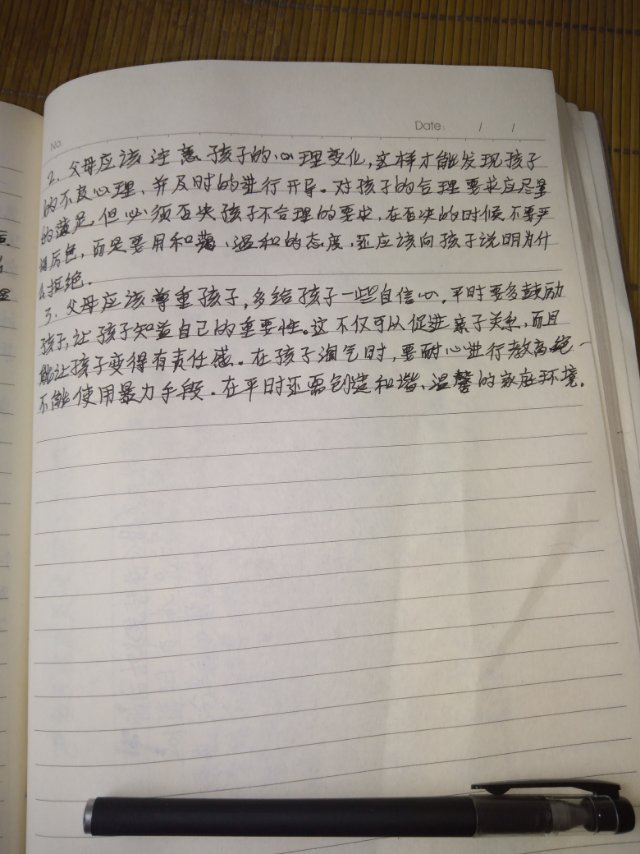 No.
Date: / /
2. 父母应该注意孩子的心理变化,这样才能发现孩子
的不良心理,并及时的进行开导。对孩子的合理要求应尽量
的满足,但必须否决孩子不合理的要求,在否决的时候不要严
厉色,而是要用和蔼、温和的态度,还应该向孩子说明为什
么拒绝.
3. 父母应该尊重孩子,多给孩子一些自信心,平时要多鼓励
孩子,让孩子知道自己的重要性。这不仅可以促进亲子关系,而且
能让孩子变得有责任感。在孩子淘气时,要耐心进行教育,绝
不能使用暴力手段。在平时还需创造和谐、温馨的家庭环境.